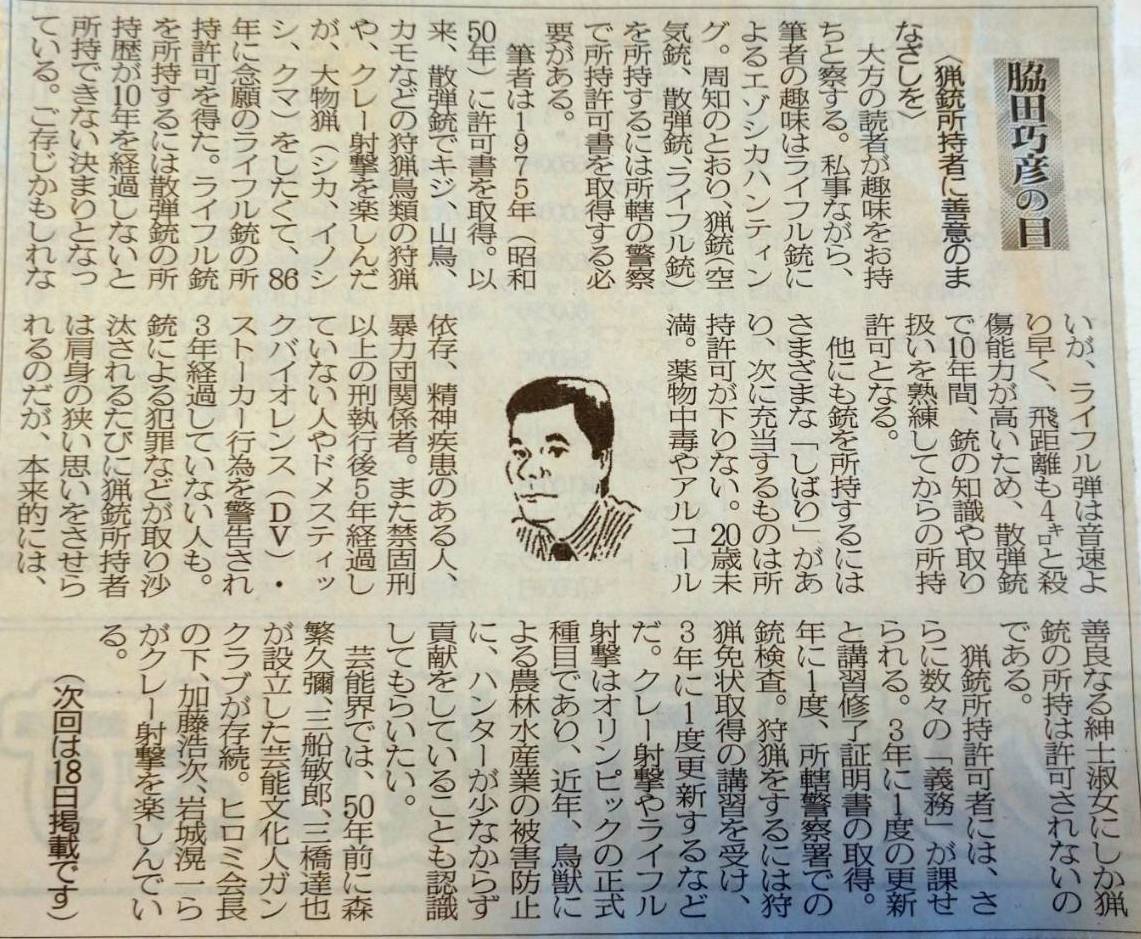 脇田巧彦の目
〈猟銃所持者に善意のま
なざしを〉
大方の読者が趣味をお持
ちと察する。私事ながら、
筆者の趣味はライフル銃に
よるエゾシカハンティン
グ。周知のとおり、猟銃(空
気銃、散弾銃、ライフル銃)
を所持するには所轄の警察
で所持許可書を取得する必
要がある。
筆者は1975年(昭和
50年)に許可書を取得。以
来、散弾銃でキジ、山鳥、
カモなどの狩猟鳥類の狩猟
や、クレー射撃を楽しんだ
が、大物猟(シカ、イノシ
シ、クマ)をしたくて、86
年に念願のライフル銃の所
持許可を得た。ライフル銃
を所持するには散弾銃の所
持歴が10年を経過しないと
所持できない決まりとなっ
ている。ご存じかもしれな
いが、ライフル弾は音速よ
り早く、飛距離も4㌔と殺
傷能力が高いため、散弾銃
で10年間、銃の知識や取り
扱いを熟練してからの所持
許可となる。
他にも銃を所持するには
さまざまな「しばり」があ
り、次に充当するものは所
持許可が下りない。20歳未
満。薬物中毒やアルコール
依存、精神疾患のある人、
暴力団関係者。また禁固刑
以上の刑執行後5年経過し
ていない人やドメスティッ
クバイオレンス(DV)・
ストーカー行為を警告され
3年経過していない人も。
銃による犯罪などが取り沙
汰されるたびに猟銃所持者
は肩身の狭い思いをさせら
れるのだが、本来的には、
善良なる紳士淑女にしか猟
銃の所持は許可されないの
である。
猟銃所持許可者には、さ
らに数々の「義務」が課せ
られる。3年に1度の更新
と講習修了証明書の取得。
年に1度、所轄警察署での
銃検査。狩猟をするには狩
猟免状取得の講習を受け、
3年に1度更新するなど
だ。クレー射撃やライフル
射撃はオリンピックの正式
種目であり、近年、鳥獣に
よる農林水産業の被害防止
に、ハンターが少なからず
貢献をしていることも認識
してもらいたい。
芸能界では、50年前に森
繁久彌、三船敏郎、三橋達也
が設立した芸能文化人ガン
クラブが存続。ヒロミ会長
の下、加藤浩次、岩城滉一ら
がクレー射撃を楽しんでい
る。
(次回は18日掲載です)